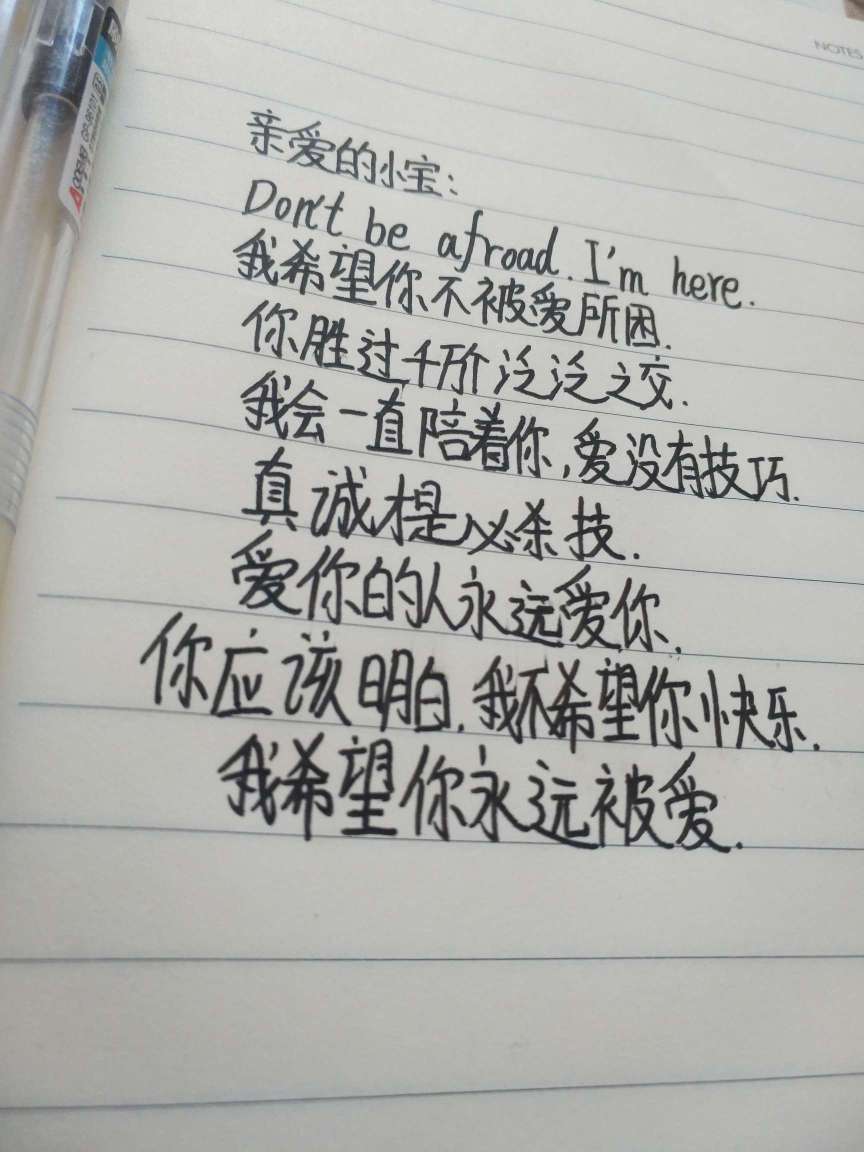 NOTES
亲爱的小宝:
Don't be afroad. I'm here.
我希望你不被爱所困.
你胜过千阶泛泛之交.
我会一直陪着你,爱没有技巧.
真诚才是必杀技.
爱你的人永远爱你.
你应该明白.我不希望你快乐.
我希望你永远被爱.